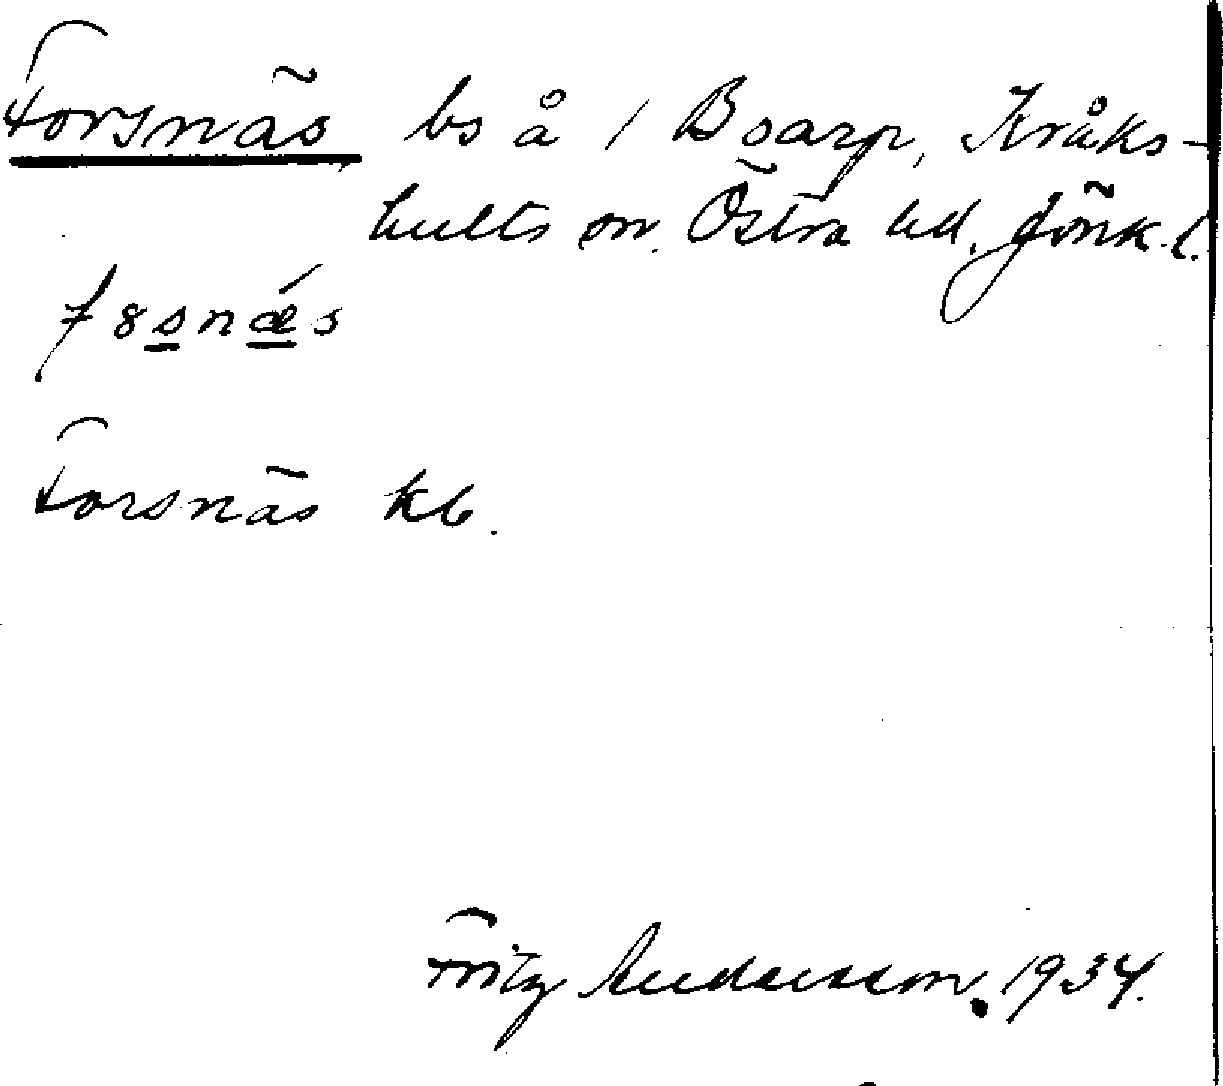 Forsnäs bs å 1 Boarp, Kråks-
hults sn. Östra hd. Jönk. l.
f8snǽs
Forsnäs kb.
Fritz Andersson. 1934.